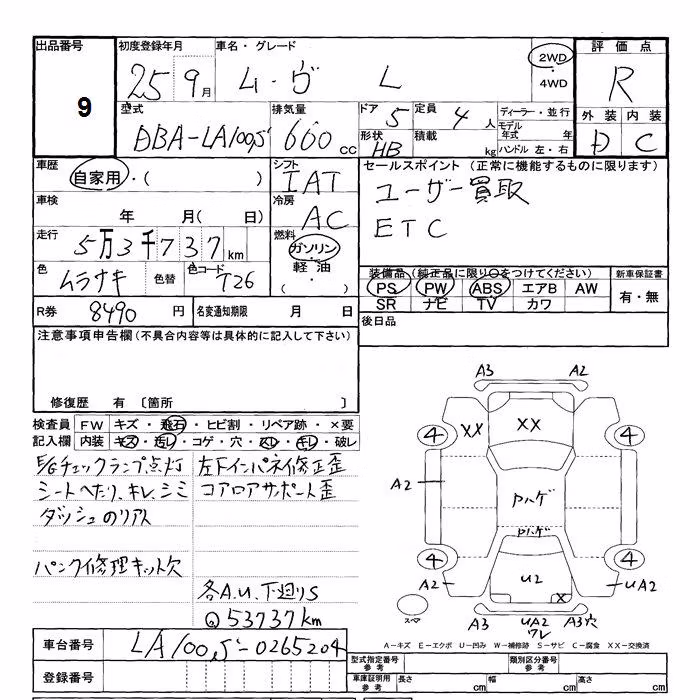 出品番号 9
初度登録年月 25 9月
車名・グレード ムーヴ L
2WD・4WD
評価点 R
外装 内装
D C
型式 DBA-LA100S
排気量 660cc
ドア 5
形状 HB
定員 4人
積載 kg
ディーラー・並行
モデル年式 年
ハンドル 左・右
車歴 自家用・( )
シフト IAT
セールスポイント (正常に機能するものに限ります)
ユーザー買取
ETC
車検 年 月( 日)
冷房 AC
走行 5万3千737km
燃料 ガソリン・軽油・( )
色 ムラサキ 色替 色コード T26
装備品(純正品に限り○をつけてください)
PS PW ABS エアB AW
SR ナビ TV カワ
新車保証書 有・無
R券 8490円
名変通知期限 月 日
後日品
注意事項申告欄(不具合内容等は具体的に記入して下さい)
修復歴 有 〔箇所 〕
検査員記入欄
FW キズ・飛石・ヒビ割・リペア跡・×要
内装 キズ・汚レ・コゲ・穴・スレ・キレ・破レ
E/Gチェックランプ点灯
シートヘたり、キレ、シミ
ダッシュのリアス
パンク修理キット欠
左下インパネ修正歪
コアロアサポート歪
各A.U、下廻りS
53737km
A3 A2
XX XX
4 4
A2 Pハゲ
Pハゲ
4 4
A2 U2 X UA2
スペア
A3 UA2 ワレ A3穴
A-キズ E-エクボ U-凹み W-補修跡 S-サビ C-腐食 XX-交換済
車台番号 LA100S-0265204
登録番号
型式指定番号 参考
類別区分番号 参考
車庫証明用 参考 長さ cm 幅 cm 高さ cm